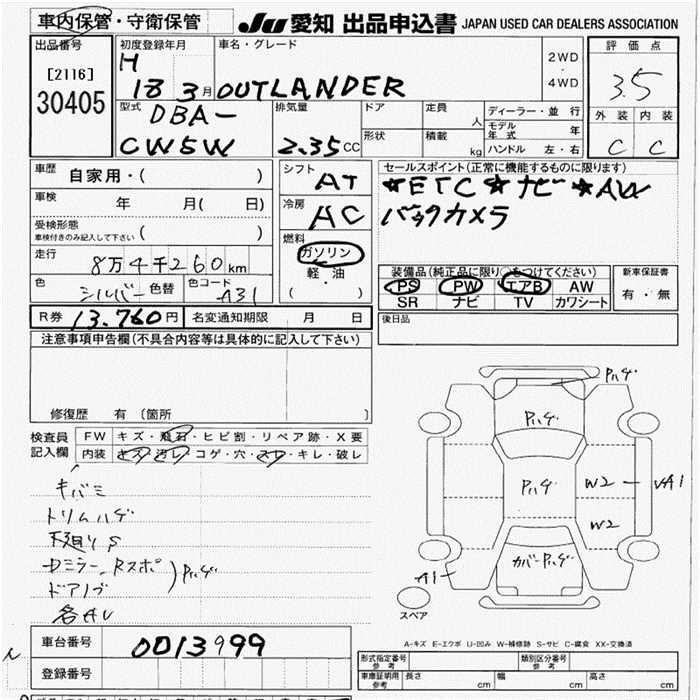 車内保管・守衛保管 JU 愛知 出品申込書 JAPAN USED CAR DEALERS ASSOCIATION
出品番号 初度登録年月 車名・グレード 評価点
[2116] H 2WD
30405 18 3月 OUTLANDER ・ 3.5
4WD
型式 排気量 ドア 定員 ディーラー・並行 外装 内装
DBA- 人 モデル年式 年
CW5W 2.35CC 形状 積載 kg ハンドル 左・右 C C
車歴 自家用・( ) シフト AT セールスポイント(正常に機能するものに限ります)
☆ETC☆ナビ☆AW
車検 年 月( 日) 冷房 AC バックカメラ
受検形態
車検付きのみ記入して下さい ( ) 燃料
走行 8万4千260km ガソリン 装備品(純正品に限り○をつけてください) 新車保証書
軽・油 PS PW エアB AW 有・無
色 シルバー 色替 色コード A31 ( ) SR ナビ TV カワシート
R券 13.760円 名変通知期限 月 日 後日品
注意事項申告欄(不具合内容等は具体的に記入して下さい)
修復歴 有 〔箇所 〕
検査員 FW キズ・飛石・ヒビ割・リペア跡・X要
記入欄 内装 キズ・汚レ・コゲ・穴・スレ・キレ・破レ
キバミ
トリムハゲ
下廻りS
Dミラー、Rスポ
ドアノブ
Pハゲ
各AU
Pハゲ
Pハゲ
Pハゲ W2 VA1
W2
カバーPハゲ
A1
スペア
A-キズ E-エクボ U-凹み W-補修跡 S-サビ C-腐食 XX-交換済
車台番号 0013999
登録番号
形式指定番号 参考 類別区分番号 参考
車庫証明用 参考 長さ cm 幅 cm 高さ cm